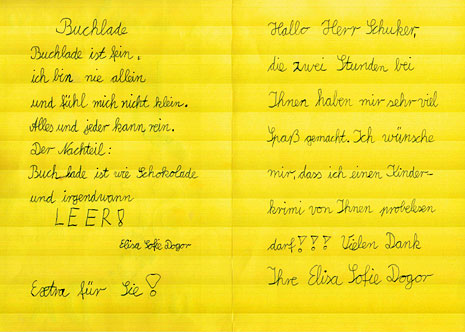 Buchlade
Buchlade ist fein,
ich bin nie allein
und fühl mich nicht klein.
Alles und jeder kann rein.
Der Nachteil:
Buchlade ist wie Schokolade
und irgendwann
LEER!
Elisa Sofie Dogor
Extra für Sie!
Hallo Herr Schuker,
die zwei Stunden bei
Ihnen haben mir sehr viel
Spaß gemacht. Ich wünsche
mir, dass ich einen Kinder-
krimi von Ihnen probelesen
darf!!! Vielen Dank
Ihre Elisa Sofie Dogor